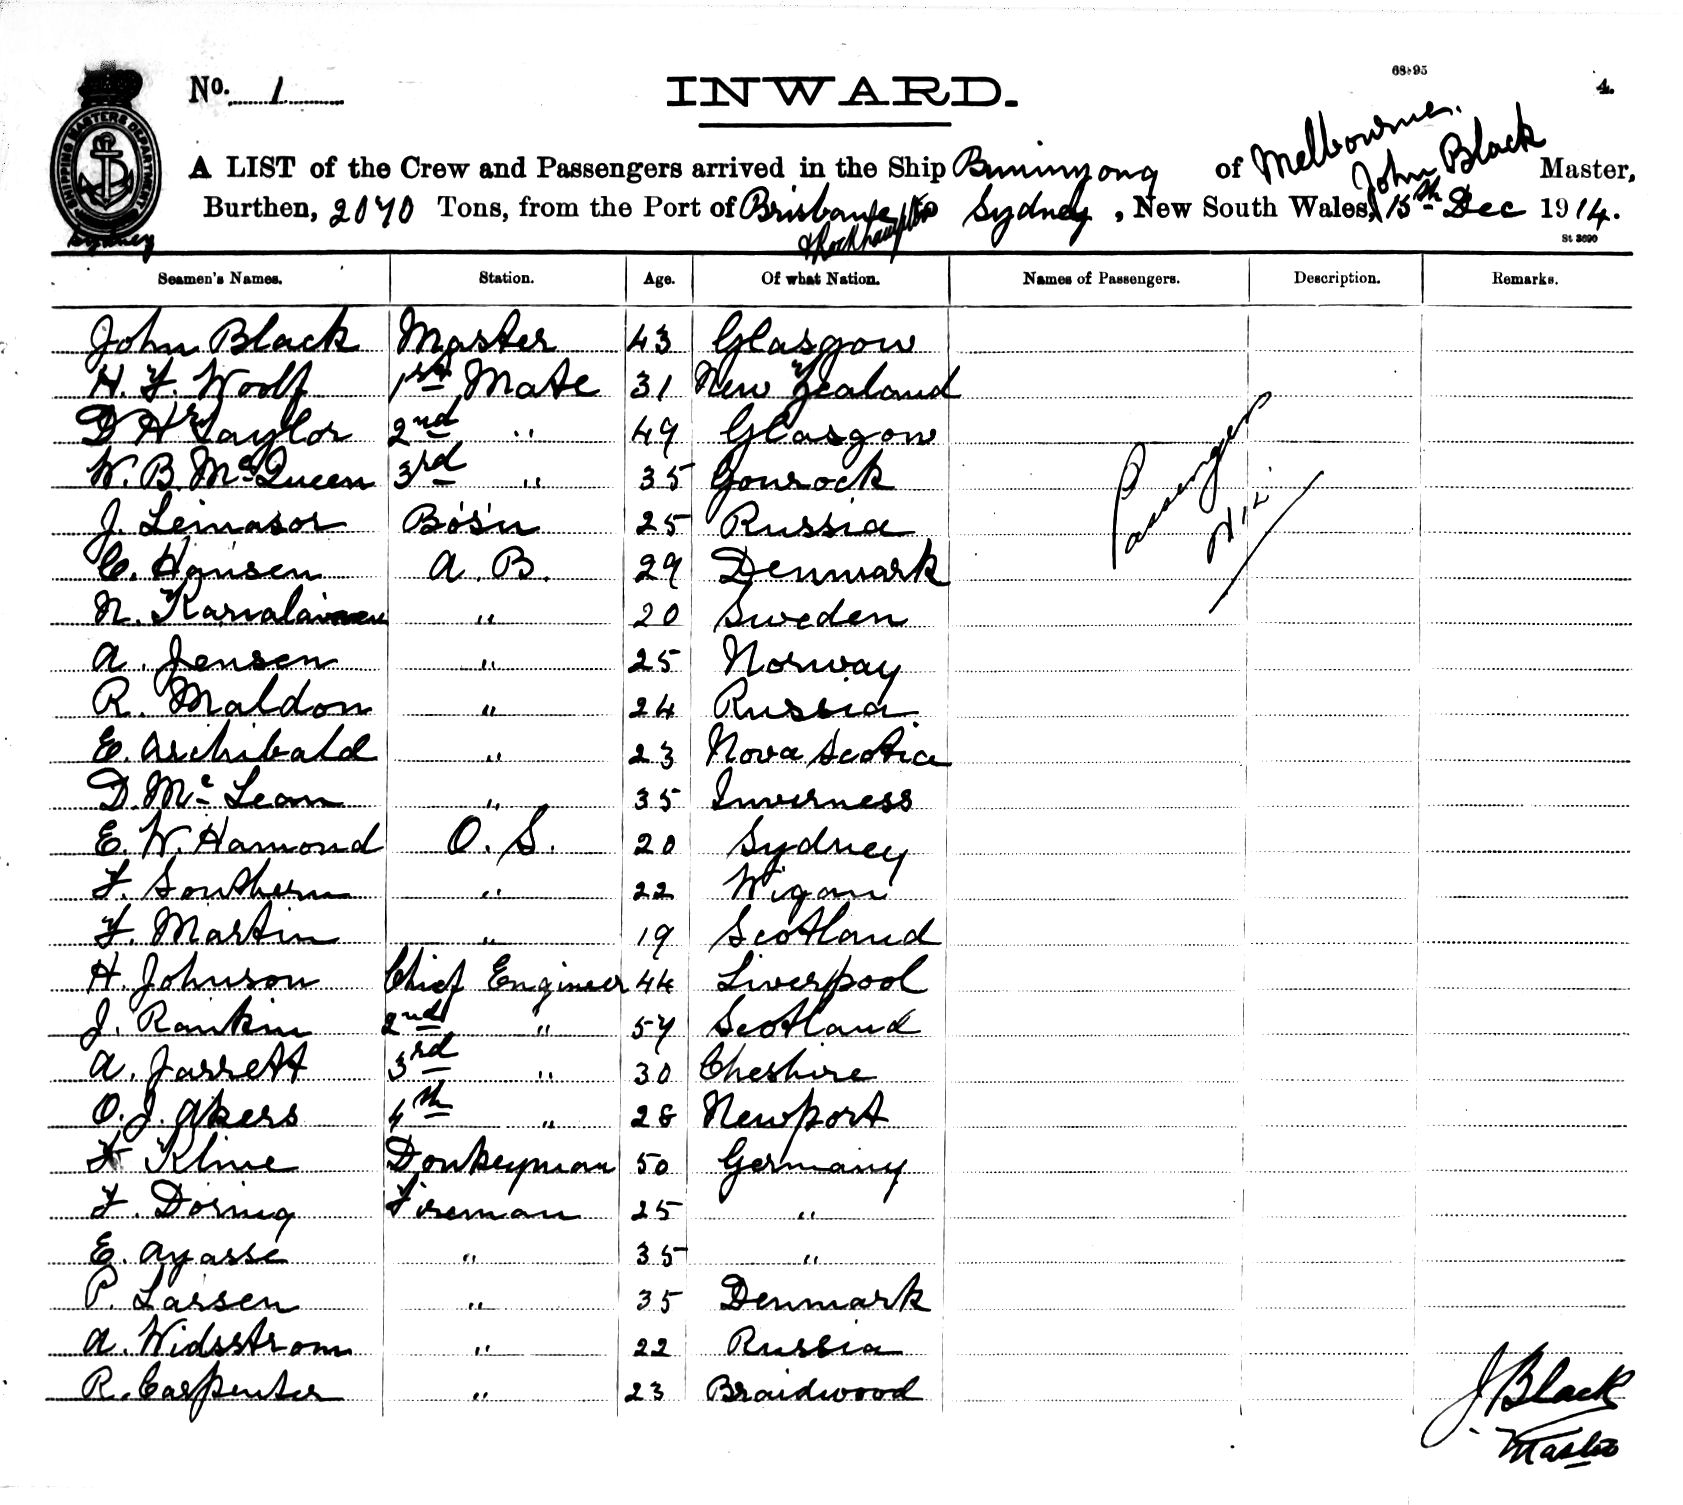 68-95
4.
No. 1
INWARD.
SHIPPING MASTERS DEPARTMENT
Sydney
A LIST of the Crew and Passengers arrived in the Ship Buninyong of Melbourne. John Black Master,
Burthen, 2070 Tons, from the Port of Brisbane & Rockhampton to Sydney, New South Wales, 15th Dec 1914.
St 3690
Seamen's Names. Station. Age. Of what Nation. Names of Passengers. Description. Remarks.
John Black Master 43 Glasgow
H. F. Woolf 1st Mate 31 New Zealand
D. H. Taylor 2nd " 49 Glasgow
W. B. McQueen 3rd " 35 Gourock
J. Leinasor Bo's'n 25 Russia
C. Hansen A. B. 29 Denmark
N. Karvalainen " 20 Sweden
A. Jensen " 25 Norway
R. Maldon " 24 Russia
E. Archibald " 23 Nova Scotia
D. McLean " 35 Inverness
E. W. Hamond O. S. 20 Sydney
F. Southern " 22 Wigan
F. Martin " 19 Scotland
H. Johnson Chief Engineer 44 Liverpool
J. Rankin 2nd " 57 Scotland
A. Jarrett 3rd " 30 Cheshire
O. J. Akers 4th " 28 Newport
Kline Donkeyman 50 Germany
F. Doring Fireman 25 "
E. Ayasse " 35 "
P. Larsen " 35 Denmark
A. Widsstrom " 22 Russia
R. Carpenter " 23 Braidwood
Passengers
Nil
J Black
Master